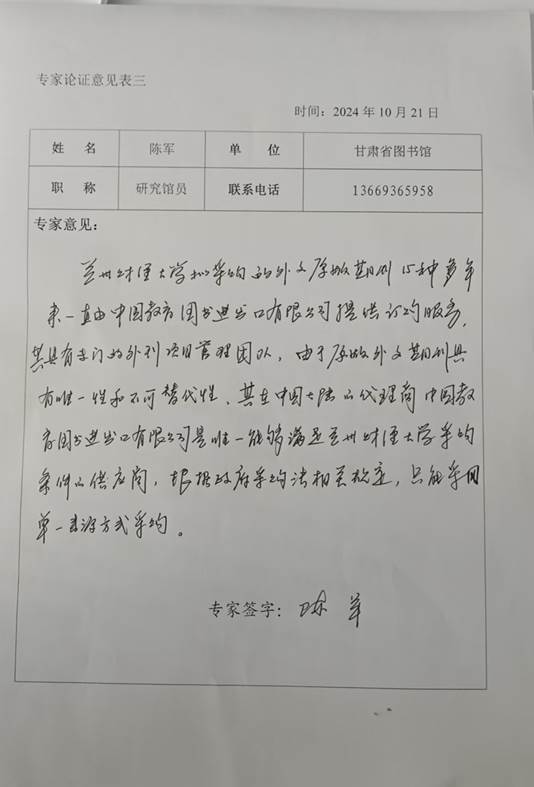 专家论证意见表三
时间：2024 年 10 月 21 日
姓 名 陈军 单 位 甘肃省图书馆
职 称 研究馆员 联系电话 13669365958
专家意见：
兰州财经大学拟采购的外文原版期刊15种多年
来一直由中国教育图书进出口有限公司提供订购服务，
其具有专门的外刊项目管理团队，由于原版外文期刊具
有唯一性和不可替代性，其在中国大陆的代理商中国教
育图书进出口有限公司是唯一能够满足兰州财经大学采购
条件的供应商，根据政府采购法相关规定，只能采用
单一来源方式采购。
专家签字：陈军